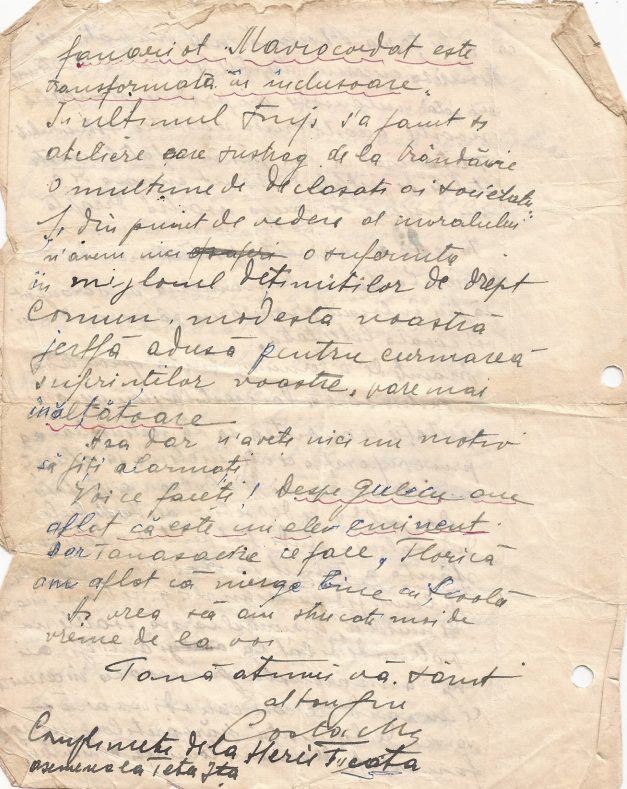 fanariot Mavrocordat este
transformată în închisoare.
În ultimul timp s'a făcut și
ateliere care sustrag de la trândăvie
o mulțime de declasați ai societății
Și din punct de vedere al moralului
n'avem nici o suferință
în mijlocul deținuților de drept
Comun. modesta voastră
jertfă adusă pentru curmarea
suferințelor voastre, pare mai
înălțătoare
Așa dar n'aveți nici un motiv
să fiți alarmați
Voi ce faceți! Despre am
aflat că este un elev eminent.
Dar Tanasache ce face, Florică
am aflat că merge bine cu școala
Aș vrea să am mai de
vreme de la voi
Până atunci vă sărut
al
Costache
Complimente de la
asemenea la Teta